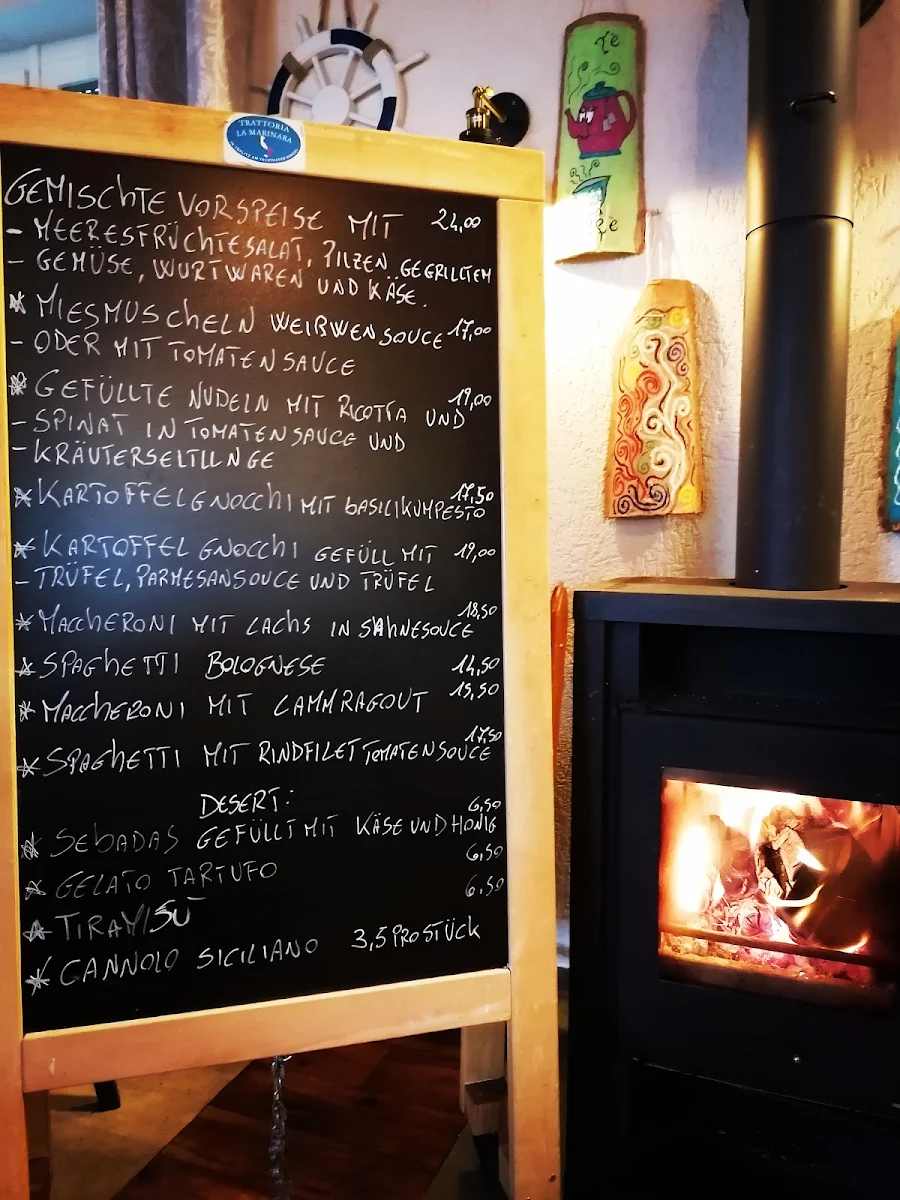 Te
TRATTORIA
LA MARINARA
GEMISCHTE VORSPEISE MIT 24,00
- MEERESFRÜCHTESALAT, PILZEN, GEGRILLTEM
- GEMÜSE, WURTWAREN UND KÄSE.
* MIESMUSCHELN WEIRWENSOUCE 17,00
- ODER MIT TOMATENSAUCE
* GEFÜLLTE NUDELN MIT RICOTTA UND 19,00
- SPINAT IN TOMATENSAUCE UND
- KRÄUTERSEITLLNGE
* KARTOFFELGNOCCHI MIT BASILIKUMPESTO 17,50
* KARTOFFEL GNOCCHI GEFÜLL MIT 19,00
- TRÜFEL, PARMESANSOUCE UND TRÜFEL
* MACCHERONI MIT LACHS IN SAHNESOUCE 18,50
* SPAGHETTI BOLOGNESE 14,50
* MACCHERONI MIT LAMMRAGOUT 15,50
* SPAGHETTI MIT RINDFILET TOMATENSOUCE 17,50
DESERT:
* SEBADAS GEFÜLLT MIT KÄSE UND HONIG 6,50
* GELATO TARTUFO 6,50
* TIRAMISÙ 6.50
* CANNOLO SICILIANO 3,5 PRO STÜCK